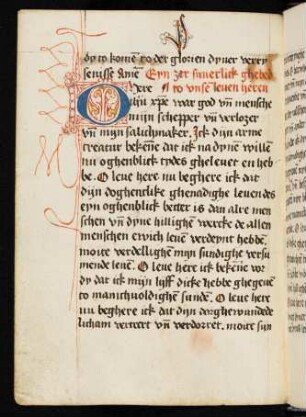 dy to komē to der glorien dyner verry
senisse Amē Eyn zer suuerlick ghebed
here to vnse leuen heren
O ihū xpē war god vñ mensche
mijn schepper vñ verlozer
vñ mijn salichmaker. Ick dijn arme
creatur bekēne dat ick na dynē willē
nu oghenblick tydes gheleuet en heb
be O leue here nu beghere ick dat
dijn doghentlicke ghenadighe leuen des
eyn oghenblick better is dan alre men
schen vñ dyne hillighē wercke de allen
menschen ewich leuē verdeynt hebbē.
moite verdellighē mijn sundighe versu
mende leuē. O leue here ick bekēne vor
dy dat ick mijn lijff dicke hebbe ghegenē
to manichuoldighen sundē. O leue here
nu beghere ick dat dijn dorghewandede
licham verteert vñ verdorret. moite sijn